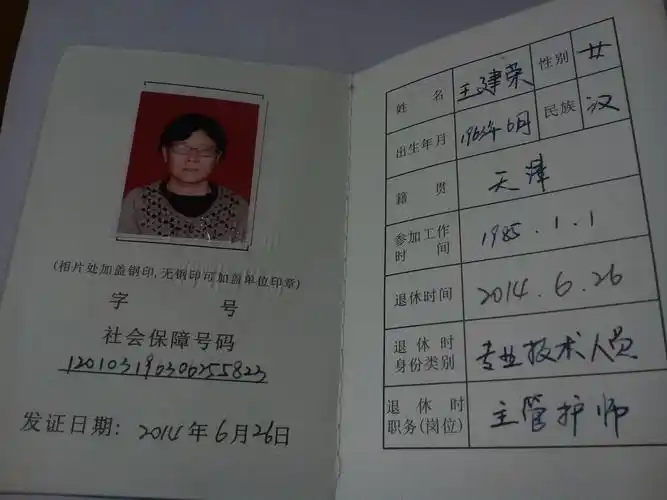 (相片处加盖钢印,无钢印可加盖单位印章)
字 号
社会保障号码
120103196306255823
发证日期: 2014年6月26日
姓 名 王建荣 性别 女
出生年月 1963年6月 民族 汉
籍 贯 天津
参加工作时间 1985.1.1
退休时间 2014.6.26
退休时身份类别 专业技术人员
退休时职务(岗位) 主管护师